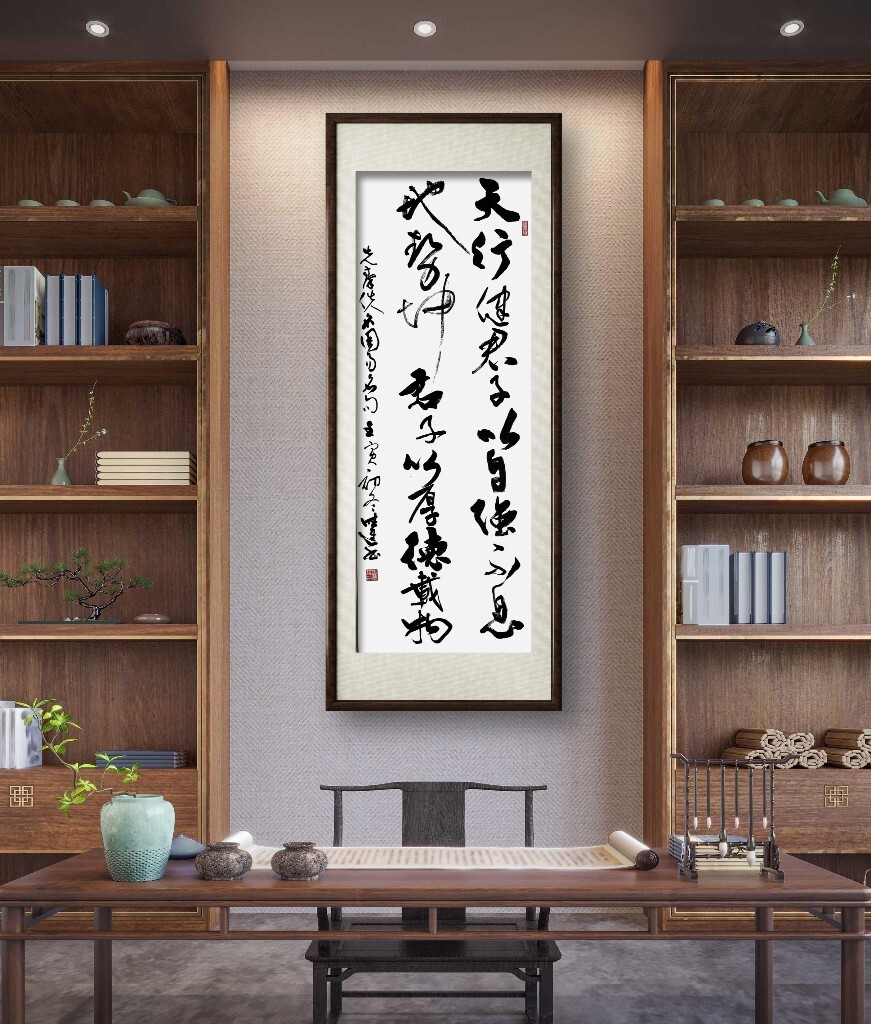 天行健君子以自强不息
地势坤君子以厚德载物
先秦佚名周易名句 壬寅初冬